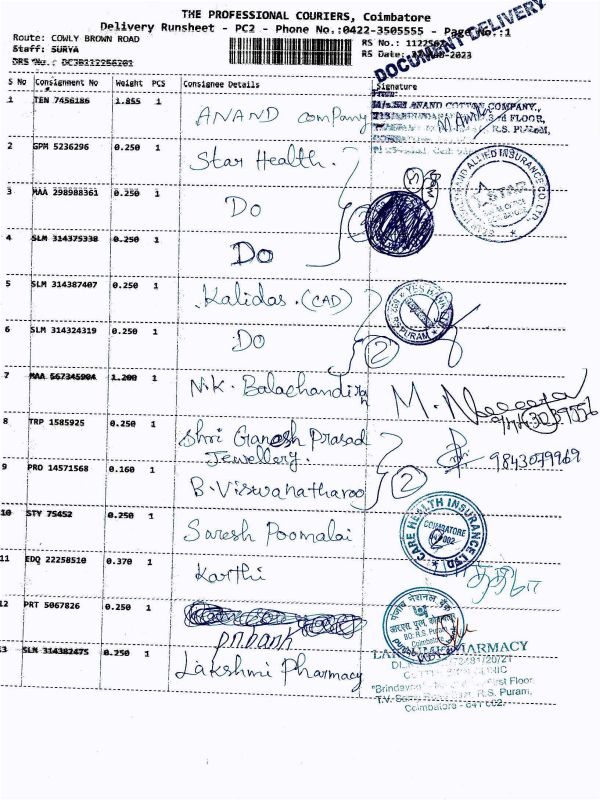 THE PROFESSIONAL COURIERS, Coimbatore
Delivery Runsheet - PC2 - Phone No.:0422-3505555 - Page No.:1
DOCUMENT DELIVERY
Route: COWLY BROWN ROAD
Staff: SURYA
RS No.:
RS Date:
S No Consignment No Weight PCS Consignee Details Signature
1 TEN 7456186 1.855 1 ANAND Company
M/s. ANAND COTTON COMPANY,
FLOOR,
R.S. PURAM,
2 GPM 5236296 0.250 1 Star Health.
AND ALLIED INSURANCE CO. LTD.
STAR
3 MAA 298988361 0.250 1 Do
3
4 SLM 314375338 0.250 1 Do
5 SLM 314387407 0.250 1 Kalidas. (CAD)
YES BANK
PURAM
6 SLM 314324319 0.250 1 Do
2
7 MAA 567345904 1.200 1 N.K. Balachandiran
8 TRP 1585925 0.250 1 Shri Ganesh Prasad
Jewellery.
9843079969
9 PRO 14571568 0.160 1 B. Viswanatharoo
2
10 STY 75452 0.250 1 Suresh Poomalai
CARE HEALTH INSURANCE LTD
COIMBATORE
11 EDQ 22258510 0.370 1 Karthi
12 PRT 5067826 0.250 1
pnbank
पंजाब नेशनल बैंक
BO: R.S. Puram
13 SLN 314382475 0.250 1 Lakshmi Pharmacy
PHARMACY
CLINIC
First Floor,
R.S. Puram,
Coimbatore - 641 002.